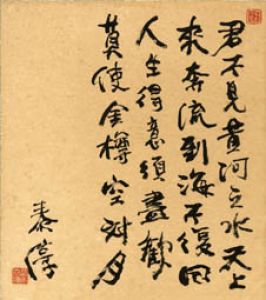 君不見黄河之水天上
來奔流到海不復回
人生得意須盡歡
莫使金樽空對月
泰